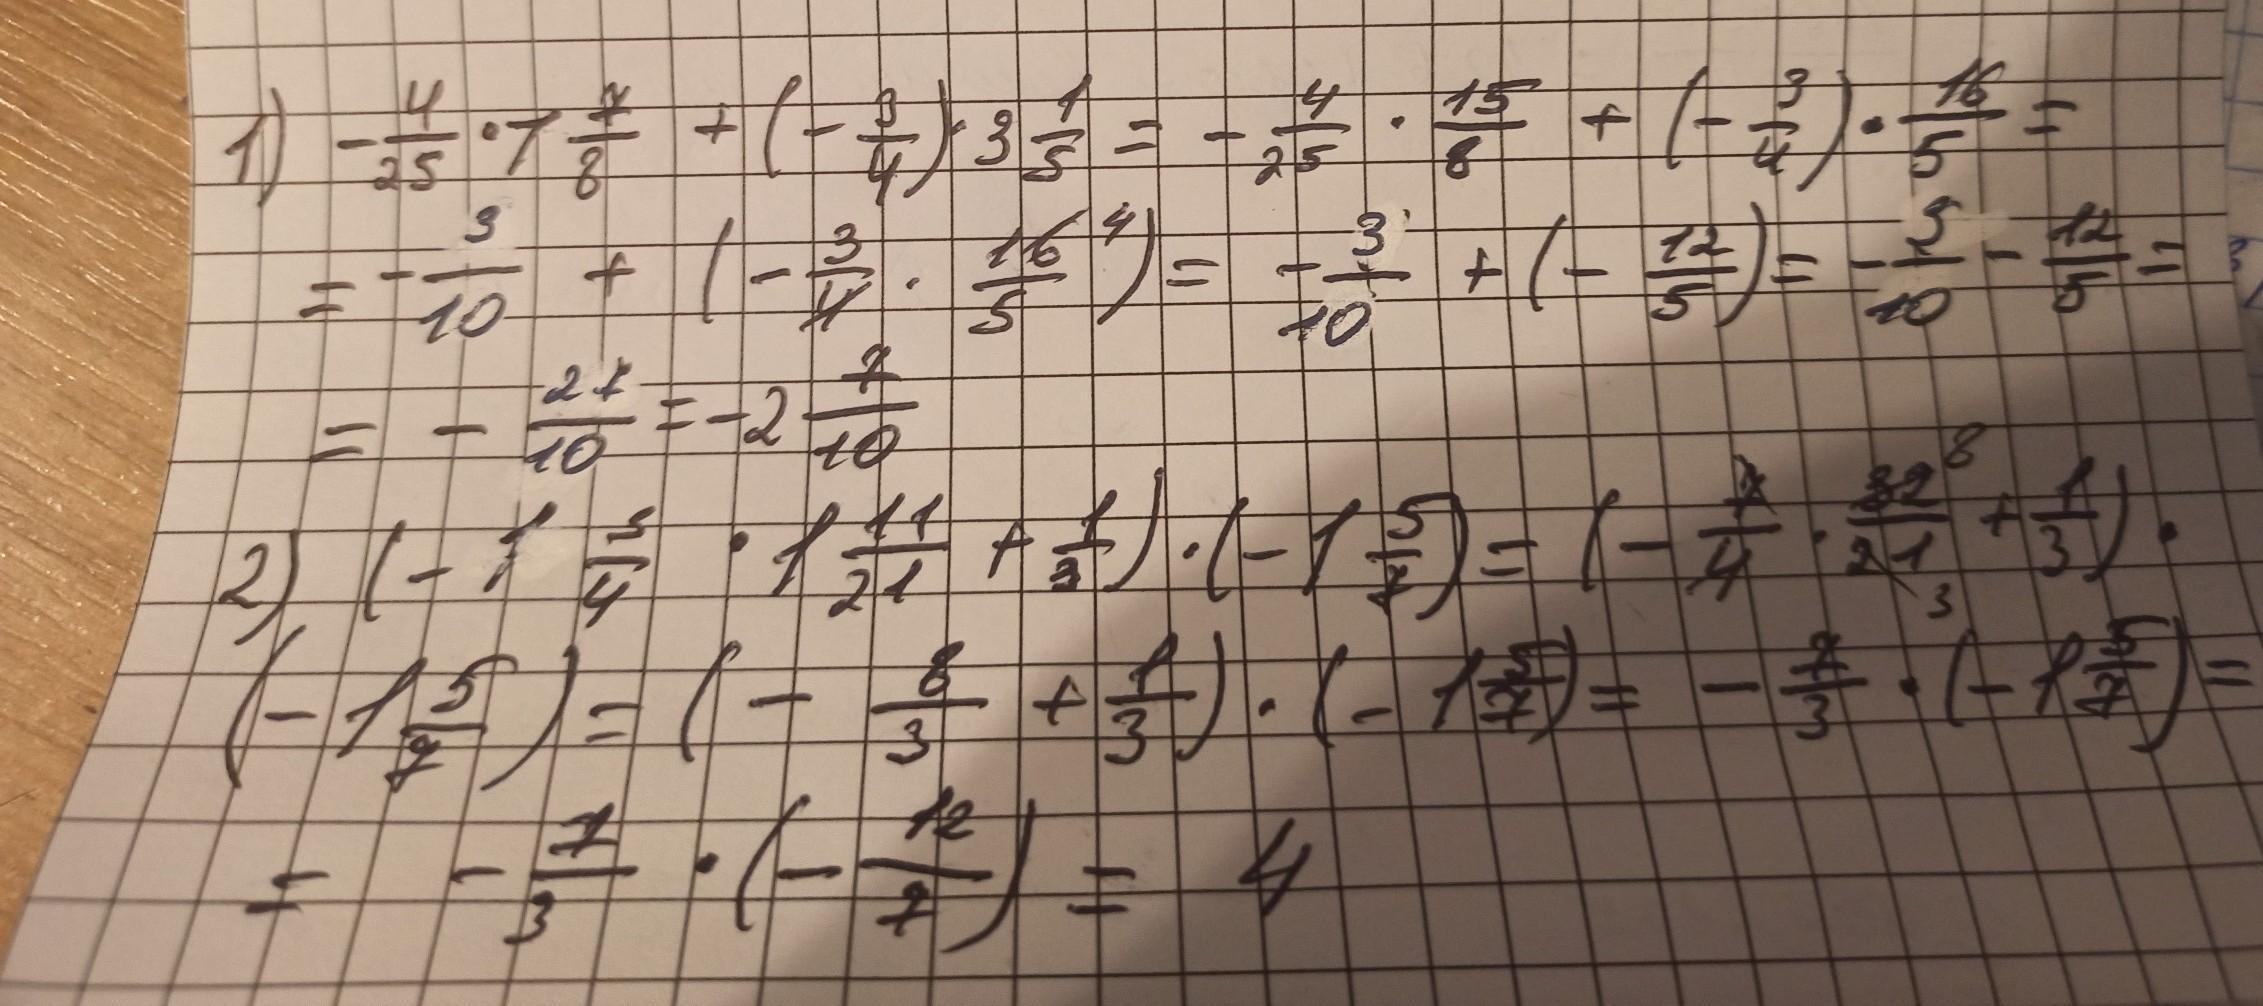 1) -4/25 · 1 7/8 + (-3/4) · 3 1/5 = -4/25 · 15/8 + (-3/4) · 16/5 =
= -3/10 + (-3/4 · 16/5 4) = -3/10 + (-12/5) = -3/10 - 12/5 =
= -27/10 = -2 7/10
2) (-1 3/4 · 1 11/21 + 1/3) · (-1 5/7) = (-7/4 · 32/21 8 3 + 1/3) ·
(-1 5/7) = (-8/3 + 1/3) · (-1 5/7) = -7/3 · (-1 5/7) =
= -7/3 · (-12/7) = 4